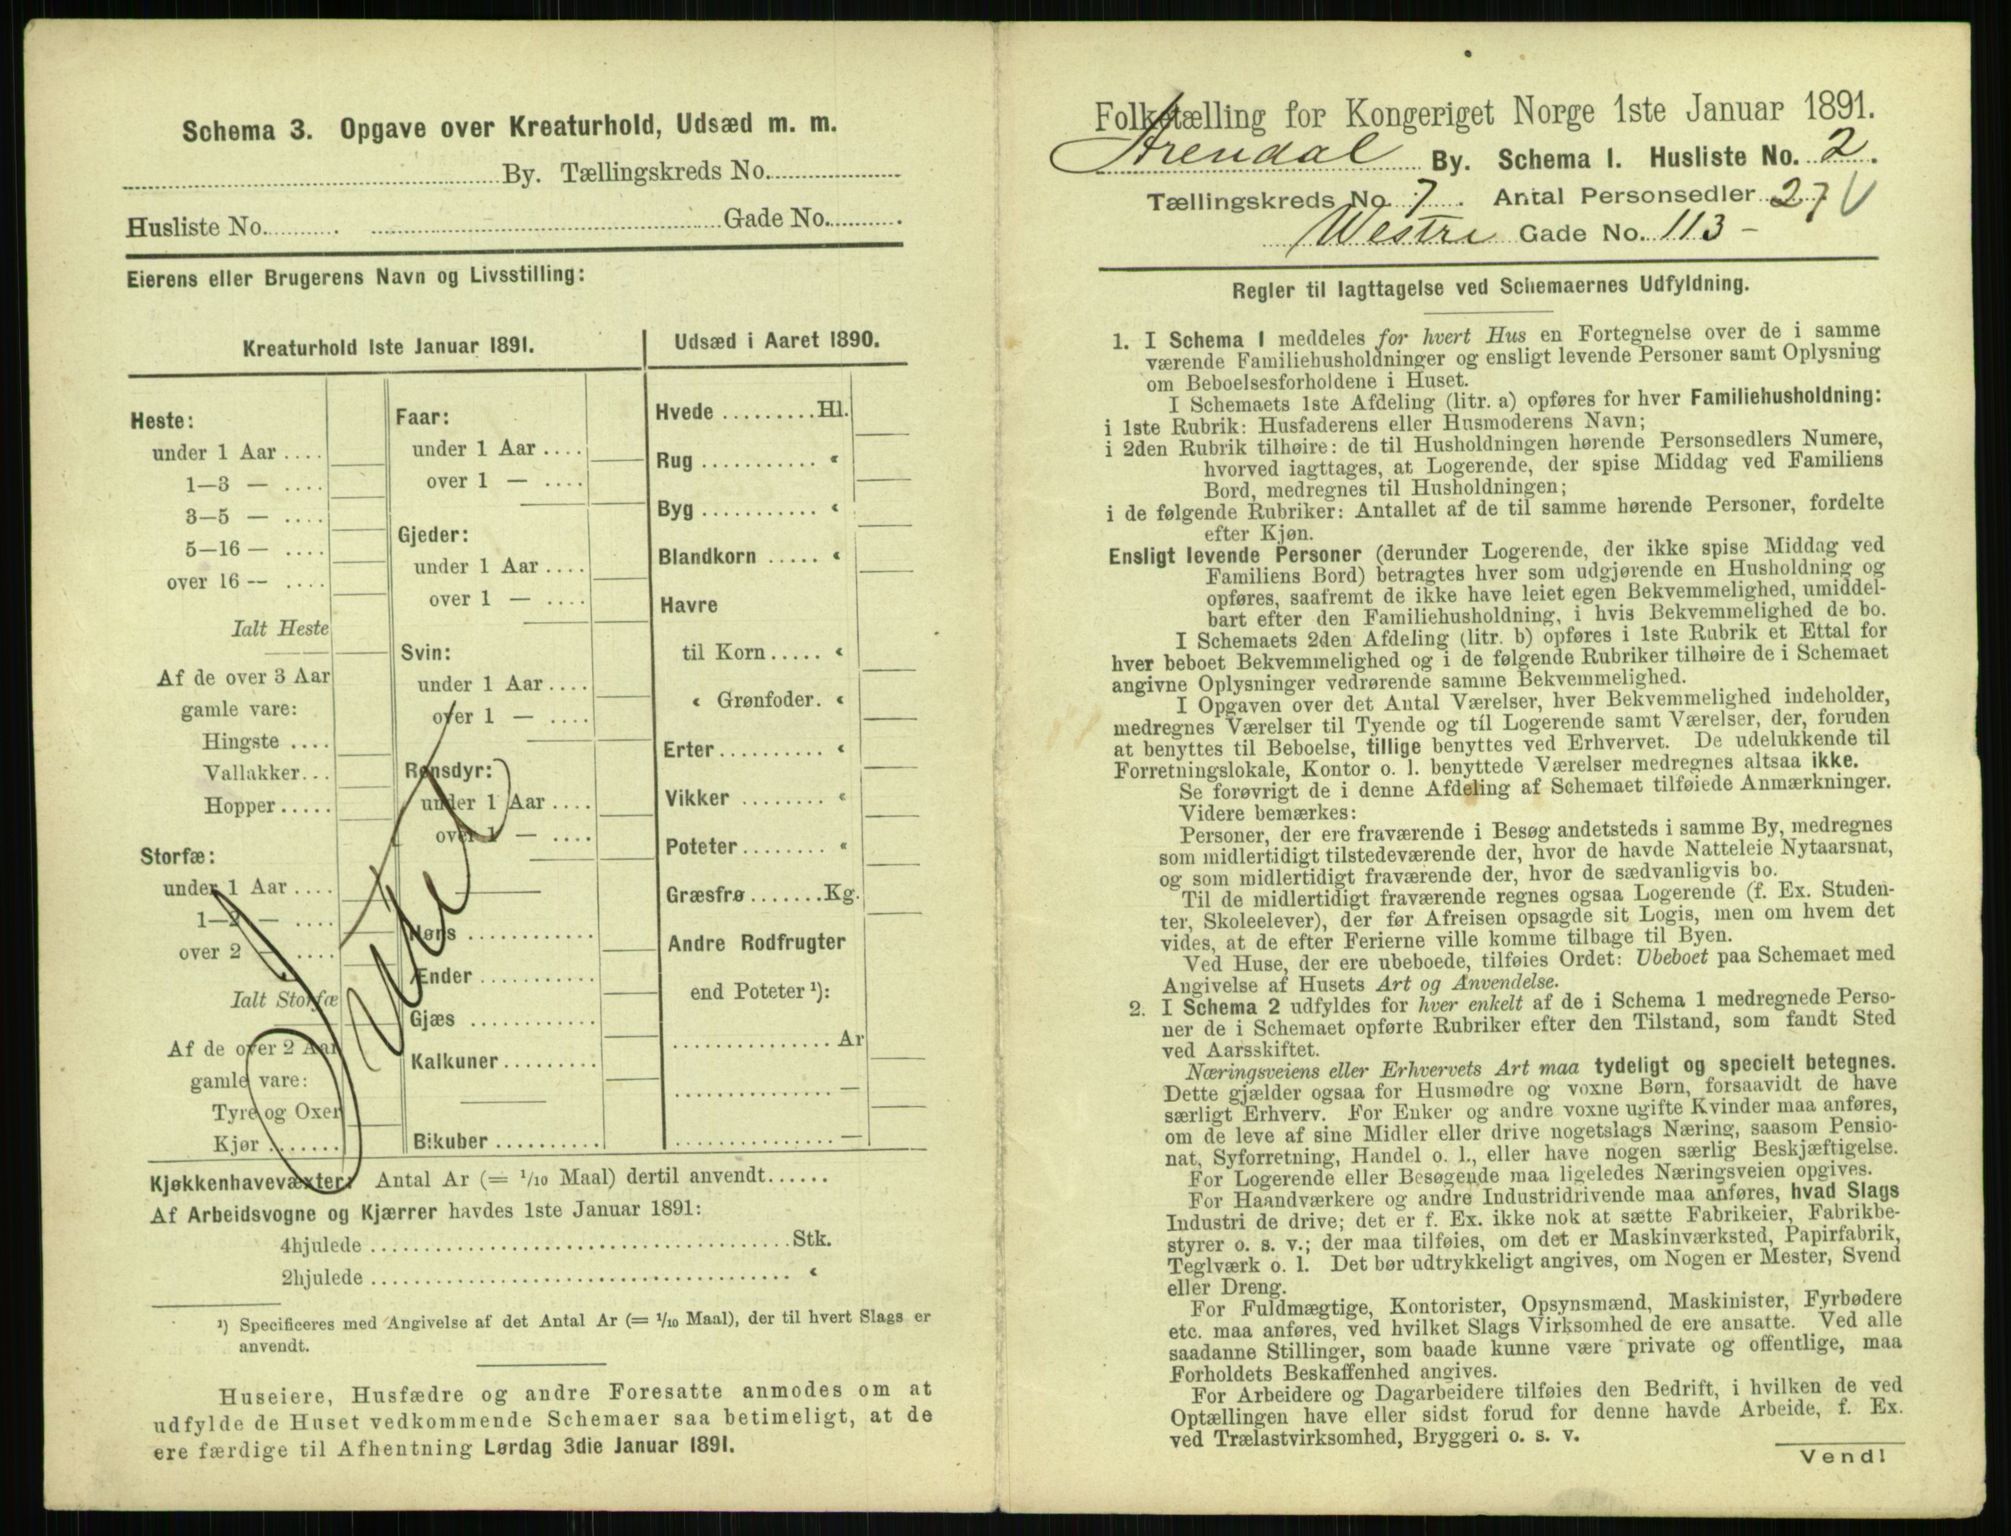 Schema 3. Opgave over Kreaturhold, Udsæd m. m.
By. Tællingskreds No.
Husliste No. Gade No.
Eierens eller Brugerens Navn og Livsstilling:
Kreaturhold 1ste Januar 1891.
Heste:
under 1 Aar ....
1—3 — ....
3—5 — ....
5—16 — ....
over 16 — ....
Ialt Heste
Af de over 3 Aar
gamle vare:
Hingste ....
Vallakker...
Hopper .....
Storfæ:
under 1 Aar ....
1—2 — ....
over 2 — ....
Ialt Storfæ
Af de over 2 Aar
gamle vare:
Tyre og Oxer
Kjør .......
Faar:
under 1 Aar ....
over 1 — ....
Gjeder:
under 1 Aar ....
over 1 — ....
Svin:
under 1 Aar ....
over 1 — ....
Rensdyr:
under 1 Aar ....
over 1 — ....
Høns ............
Ænder ...........
Gjæs ............
Kalkuner .........
Bikuber ..........
Udsæd i Aaret 1890.
Hvede .........Hl.
Rug ........... «
Byg ........... «
Blandkorn ..... «
Havre
til Korn..... «
« Grønfoder. «
Erter .......... «
Vikker ........ «
Poteter ........ «
Græsfrø .......Kg.
Andre Rodfrugter
end Poteter ¹):
............... Ar
............... —
............... —
Kjøkkenhavevæxter: Antal Ar (= ¹/₁₀ Maal) dertil anvendt......
Af Arbeidsvogne og Kjærrer havdes 1ste Januar 1891:
4hjulede ........................................Stk.
2hjulede ........................................ «
¹) Specificeres med Angivelse af det Antal Ar (= ¹/₁₀ Maal), der til hvert Slags er
anvendt.
Huseiere, Husfædre og andre Foresatte anmodes om at
udfylde de Huset vedkommende Schemaer saa betimeligt, at de
ere færdige til Afhentning Lørdag 3die Januar 1891.
Folketælling for Kongeriget Norge 1ste Januar 1891.
Arendal By. Schema 1. Husliste No. 2.
Tællingskreds No. 7. Antal Personsedler 27 V
Westre Gade No. 113 -
Regler til Iagttagelse ved Schemaernes Udfyldning.
1. I Schema 1 meddeles for hvert Hus en Fortegnelse over de i samme
værende Familiehusholdninger og ensligt levende Personer samt Oplysning
om Beboelsesforholdene i Huset.
I Schemaets 1ste Afdeling (litr. a) opføres for hver Familiehusholdning:
i 1ste Rubrik: Husfaderens eller Husmoderens Navn;
i 2den Rubrik tilhøire: de til Husholdningen hørende Personsedlers Numere,
hvorved iagttages, at Logerende, der spise Middag ved Familiens
Bord, medregnes til Husholdningen;
i de følgende Rubriker: Antallet af de til samme hørende Personer, fordelte
efter Kjøn.
Ensligt levende Personer (derunder Logerende, der ikke spise Middag ved
Familiens Bord) betragtes hver som udgjørende en Husholdning og
opføres, saafremt de ikke have leiet egen Bekvemmelighed, umiddel-
bart efter den Familiehusholdning, i hvis Bekvemmelighed de bo.
I Schemaets 2den Afdeling (litr. b) opføres i 1ste Rubrik et Ettal for
hver beboet Bekvemmelighed og i de følgende Rubriker tilhøire de i Schemaet
angivne Oplysninger vedrørende samme Bekvemmelighed.
I Opgaven over det Antal Værelser, hver Bekvemmelighed indeholder,
medregnes Værelser til Tyende og til Logerende samt Værelser, der, foruden
at benyttes til Beboelse, tillige benyttes ved Erhvervet. De udelukkende til
Forretningslokale, Kontor o. l. benyttede Værelser medregnes altsaa ikke.
Se forøvrigt de i denne Afdeling af Schemaet tilføiede Anmærkninger.
Videre bemærkes:
Personer, der ere fraværende i Besøg andetsteds i samme By, medregnes
som midlertidigt tilstedeværende der, hvor de havde Natteleie Nytaarsnat,
og som midlertidigt fraværende der, hvor de sædvanligvis bo.
Til de midlertidigt fraværende regnes ogsaa Logerende (f. Ex. Studen-
ter, Skoleelever), der før Afreisen opsagde sit Logis, men om hvem det
vides, at de efter Ferierne ville komme tilbage til Byen.
Ved Huse, der ere ubeboede, tilføies Ordet: Ubeboet paa Schemaet med
Angivelse af Husets Art og Anvendelse.
2. I Schema 2 udfyldes for hver enkelt af de i Schema 1 medregnede Perso-
ner de i Schemaet opførte Rubriker efter den Tilstand, som fandt Sted
ved Aarsskiftet.
Næringsveiens eller Erhvervets Art maa tydeligt og specielt betegnes.
Dette gjælder ogsaa for Husmødre og voxne Børn, forsaavidt de have
særligt Erhverv. For Enker og andre voxne ugifte Kvinder maa anføres,
om de leve af sine Midler eller drive nogetslags Næring, saasom Pensio-
nat, Syforretning, Handel o. l., eller have nogen særlig Beskjæftigelse.
For Logerende eller Besøgende maa ligeledes Næringsveien opgives.
For Haandværkere og andre Industridrivende maa anføres, hvad Slags
Industri de drive; det er f. Ex. ikke nok at sætte Fabrikeier, Fabrikbe-
styrer o. s. v.; der maa tilføies, om det er Maskinværksted, Papirfabrik,
Teglværk o. l. Det bør udtrykkeligt angives, om Nogen er Mester, Svend
eller Dreng.
For Fuldmægtige, Kontorister, Opsynsmænd, Maskinister, Fyrbødere
etc. maa anføres, ved hvilket Slags Virksomhed de ere ansatte. Ved alle
saadanne Stillinger, som baade kunne være private og offentlige, maa
Forholdets Beskaffenhed angives.
For Arbeidere og Dagarbeidere tilføies den Bedrift, i hvilken de ved
Optællingen have eller sidst forud for denne havde Arbeide, f. Ex.
ved Trælastvirksomhed, Bryggeri o. s. v.
Vend!